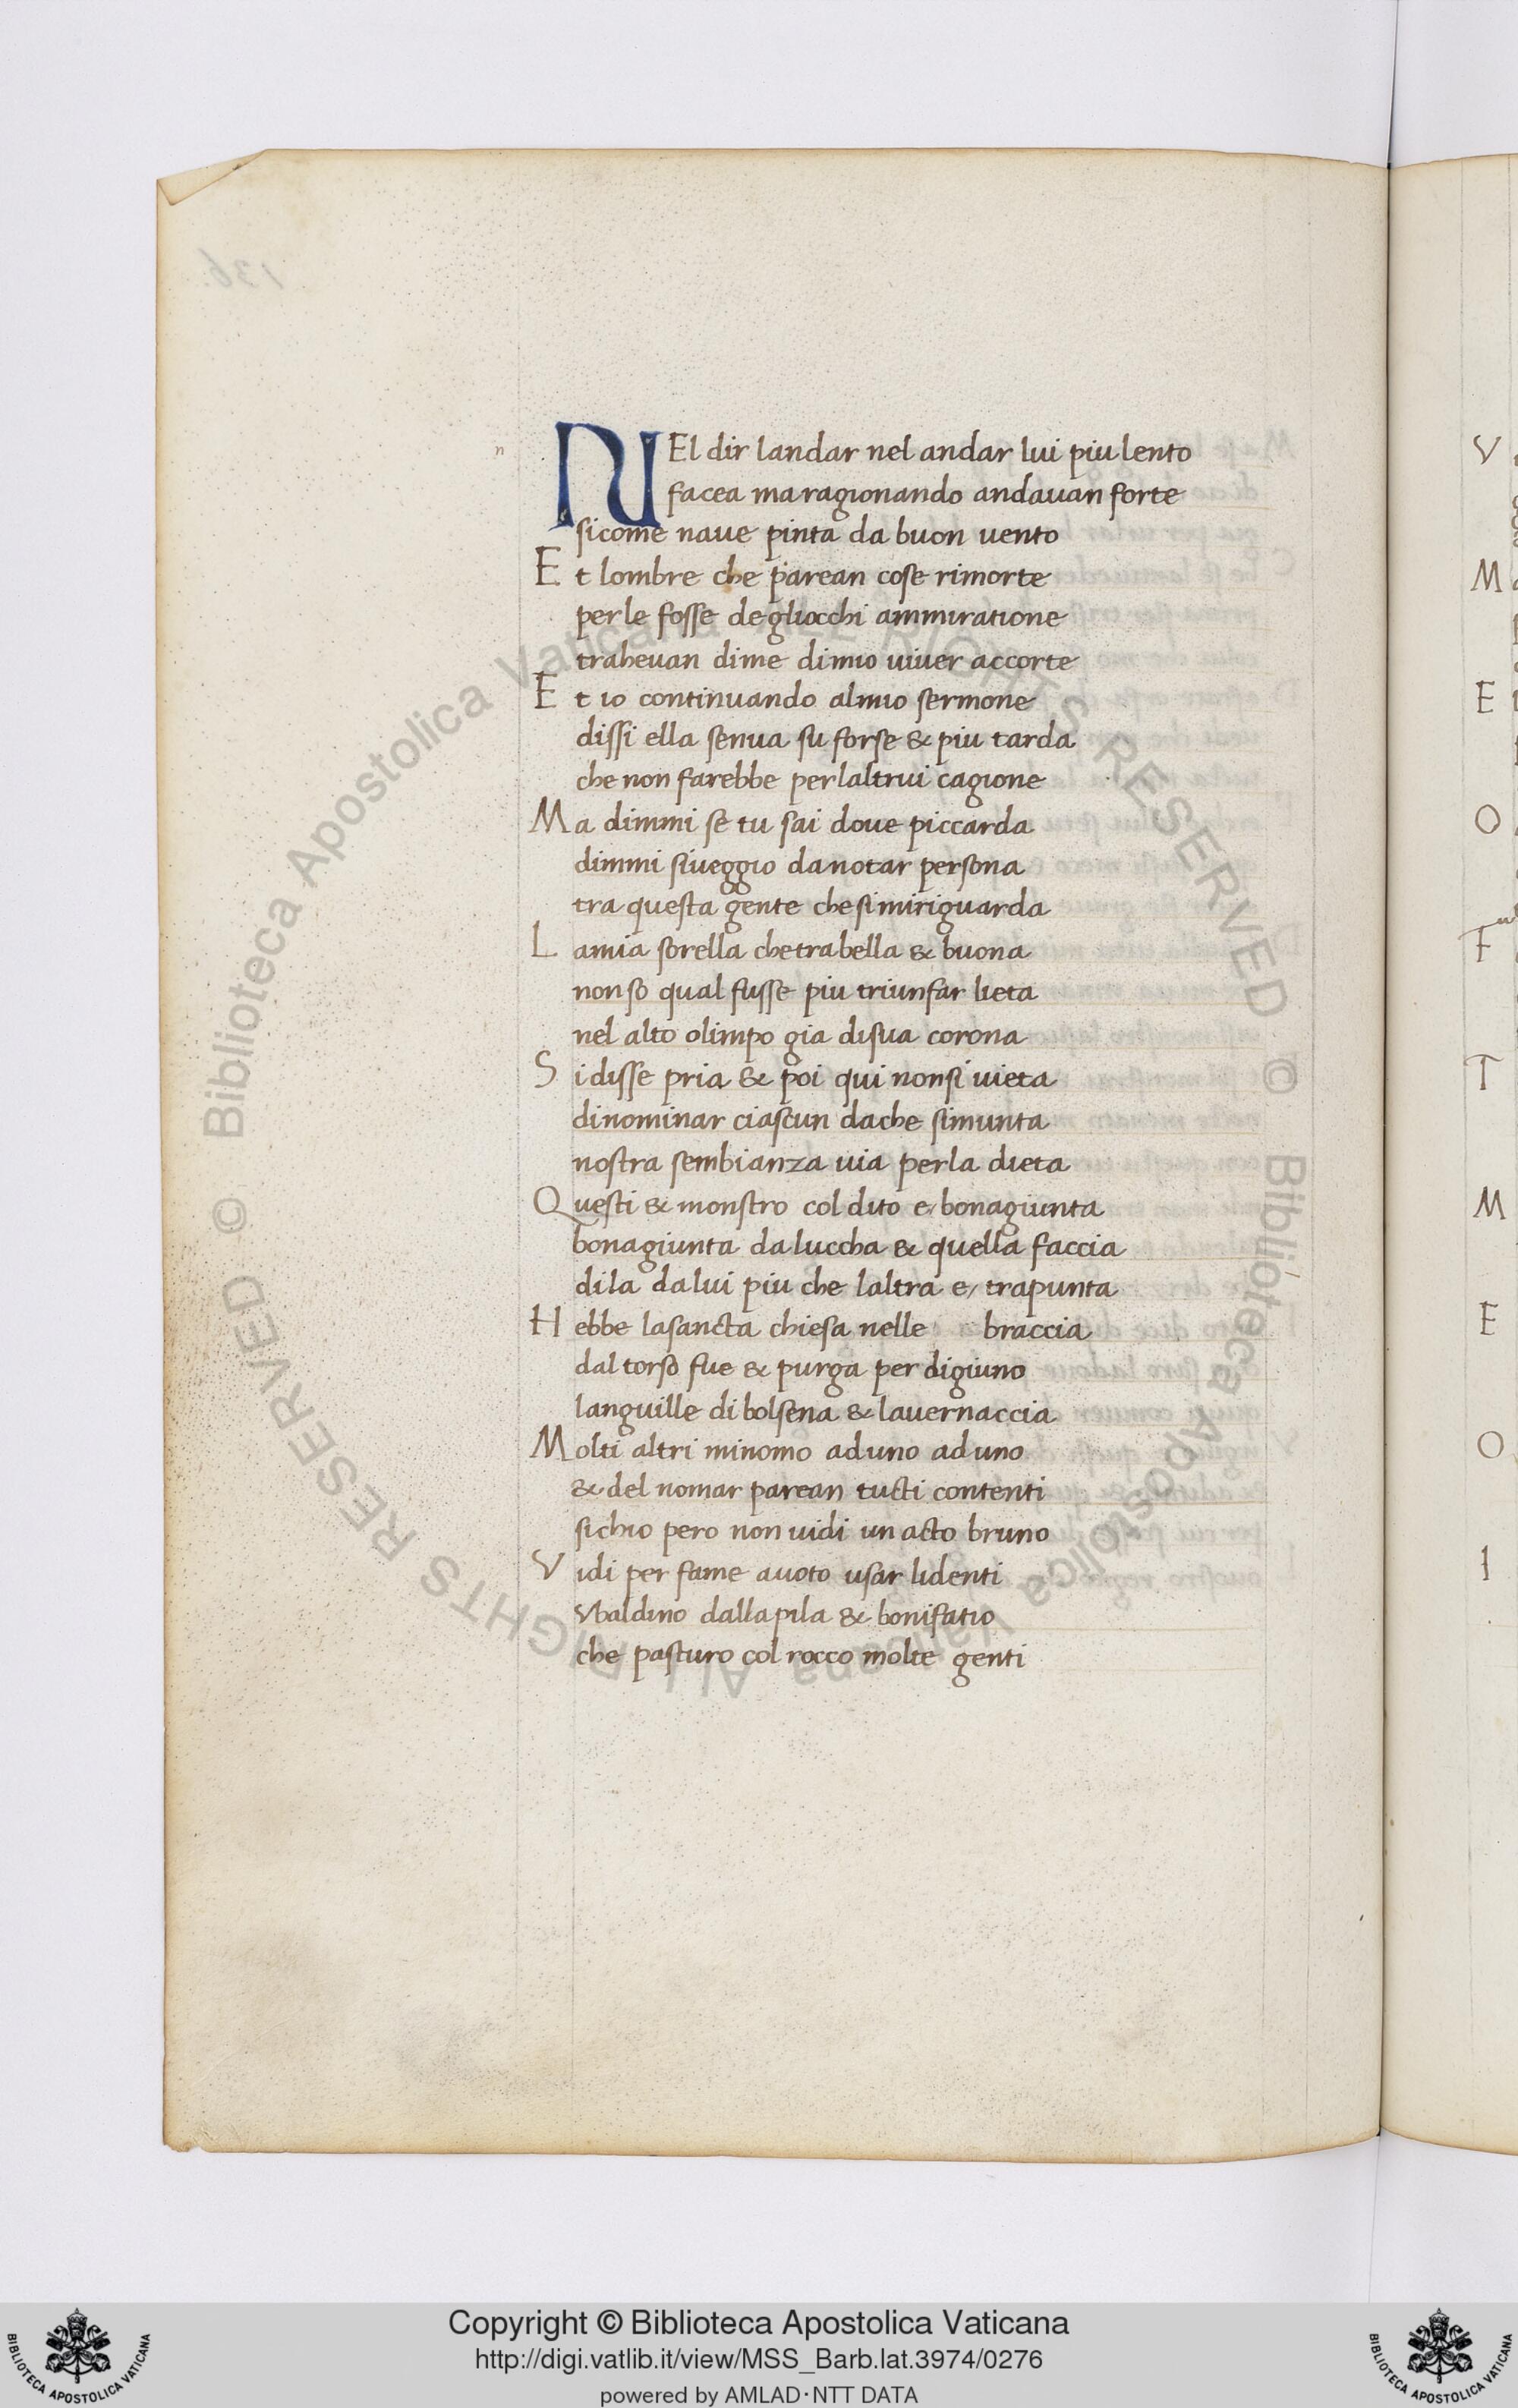 NEl dir landar nel andar lui piu lento
facea ma ragionando andauan forte
sicome naue pinta da buon uento
Et lombre che parean cose rimorte
perle fosse degliocchi ammiratione
traheuan dime dimio uiuer accorte
Et io continuando almio sermone
dissi ella senua su forse & piu tarda
che non farebbe perlaltrui cagione
Ma dimmi se tu sai doue piccarda
dimmi siueggio danotar persona
tra questa gente che simiriguarda
Lamia sorella chetrabella & buona
nonso qual fusse piu triunfar lieta
nel alto olimpo gia disua corona
Si disse pria & poi qui nonsi uieta
dinominar ciascun dache simunta
nostra sembianza uia perla dieta
Questi & monstro col dito e bonagiunta
bonagiunta da luccha & quella faccia
dila dalui piu che laltra e trapunta
Hebbe lasancta chiesa nelle braccia
dal torso fue & purga per digiuno
languille di bolsena & lauernaccia
Molti altri minomo aduno aduno
& del nomar parean tucti contenti
sichio pero non uidi un acto bruno
Vidi per fame auoto usar lidenti
Vbaldino dallapila & bonifatio
che pasturo col rocco molte genti
n
136
V
M
E
O
F
T
M
E
O
I
© Biblioteca Apostolica Vaticana ALL RIGHTS RESERVED © Biblioteca Apostolica Vaticana ALL RIGHTS RESERVED
Copyright © Biblioteca Apostolica Vaticana
http://digi.vatlib.it/view/MSS_Barb.lat.3974/0276
powered by AMLAD·NTT DATA
BIBLIOTECA APOSTOLICA VATICANA
BIBLIOTECA APOSTOLICA VATICANA